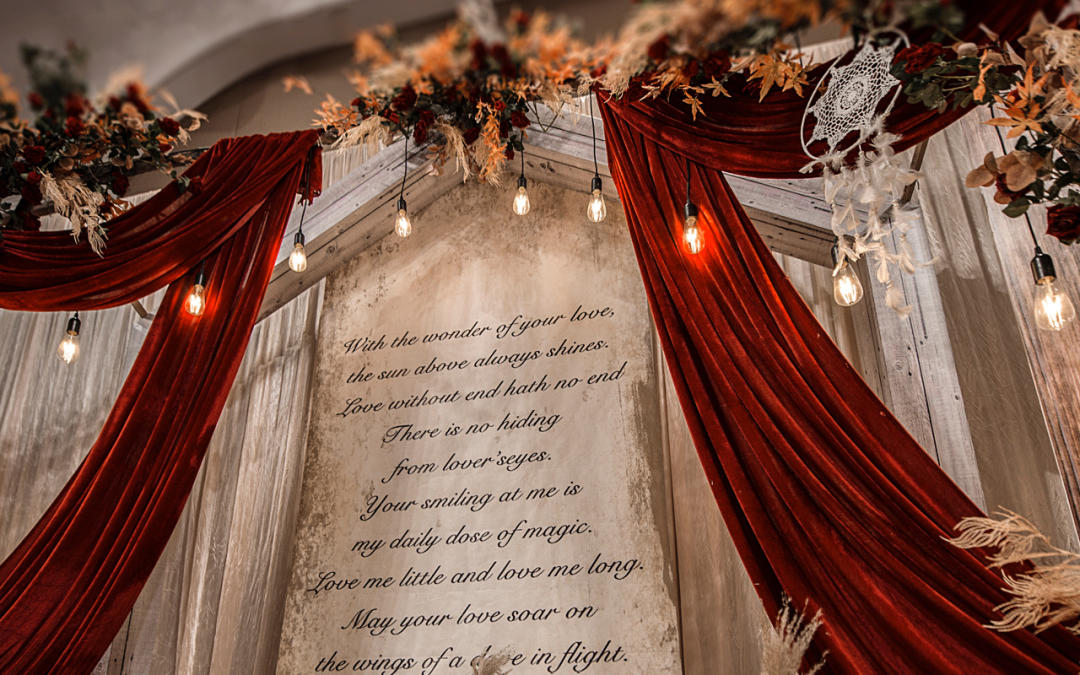 With the wonder of your love,
the sun above always shines.
Love without end hath no end
There is no hiding
from lover'seyes.
Your smiling at me is
my daily dose of magic.
Love me little and love me long.
May your love soar on
the wings of a dove in flight.